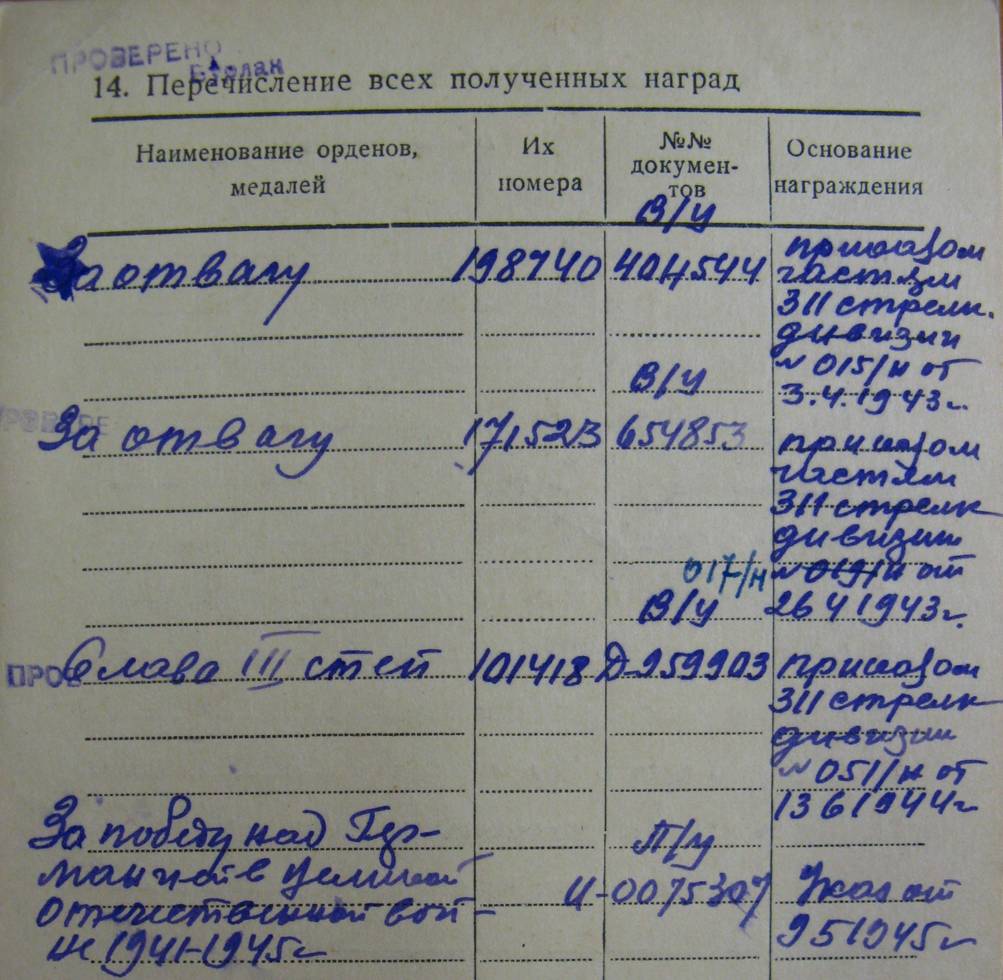 ПРОВЕРЕНО
14. Перечисление всех полученных наград
Наименование орденов, медалей
Их номера
№№ документов
Основание награждения
В/у
За отвагу 198740 404544 приказом
частям
311 стрелк.
дивизии
№ 015/н от
3.4.1943г.
В/у
За отвагу 171523 654853 приказом
частям
311 стрелк
дивизии
017/н № 019/н от
В/у 26 4 1943г.
Слава III степ 101418 Д-959903 приказом
311 стрелк
дивизии
№ 051/н от
13 6 1944г
За победу над Гер-
П/у
манией в Великой
Отечественной вой-
И-0075307 Указ от
не 1941-1945г 9 5 1945г